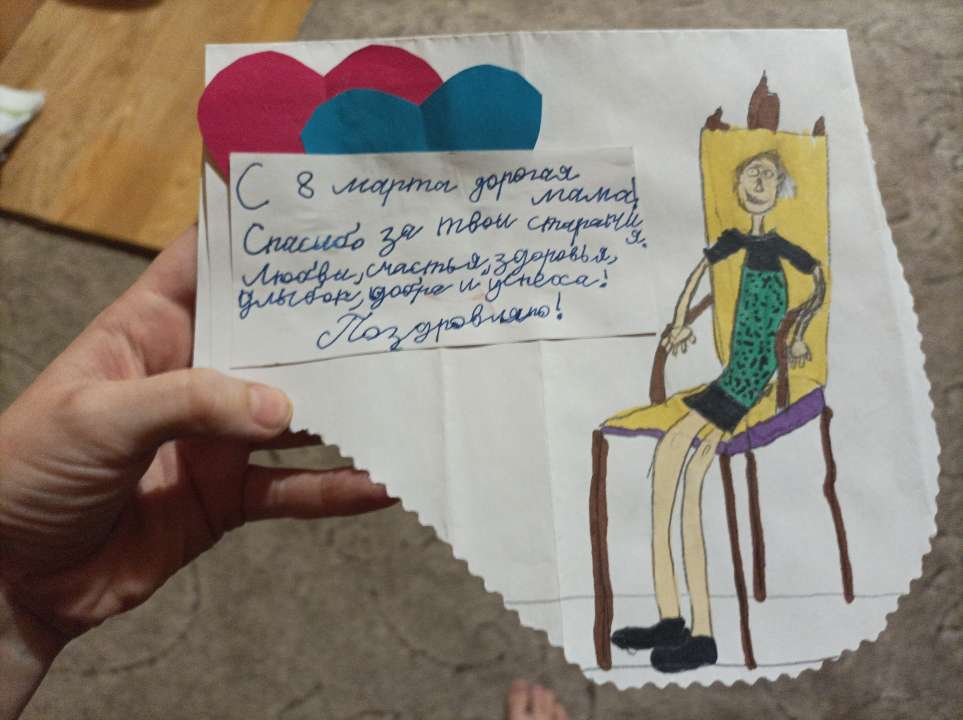 С 8 марта дорогая
мама!
Спасибо за твои старания.
Любви, счастья, здоровья,
улыбок, добра и успеха!
Поздравляю!